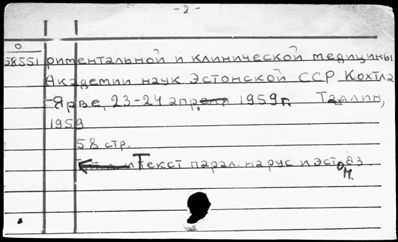 -2-
0
58551
риментальной и клинической медицины
Академии наук Эстонской ССР. Кохтла
-Ярве, 23-24 апреля 1959г. Таллин,
1959
58 стр.
Текст парал. на рус и эстон. яз.